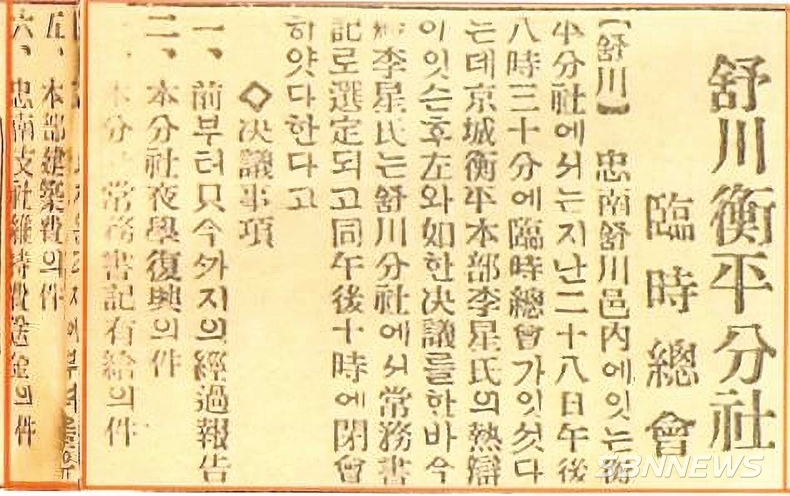 舒川衡平分社
臨時總會
【舒川】 忠南舒川邑內에잇는衡
平分社에서는지난二十八日午後
八時三十分에臨時總會가잇섯다
는데京城衡平本部李星氏의熱辯
이잇슨後左와如한决議를한바今
李星氏는舒川分社에서常務書
記로選定되고同午後十時에閉會
하얏다한다고
◇决議事項
一、前부터只今外지의經過報告
二、本分社夜學復興의件
本分 常務書記有給의件
五、本部建築費의件
六、忠南支社維持費送金의件
SBNNEWS